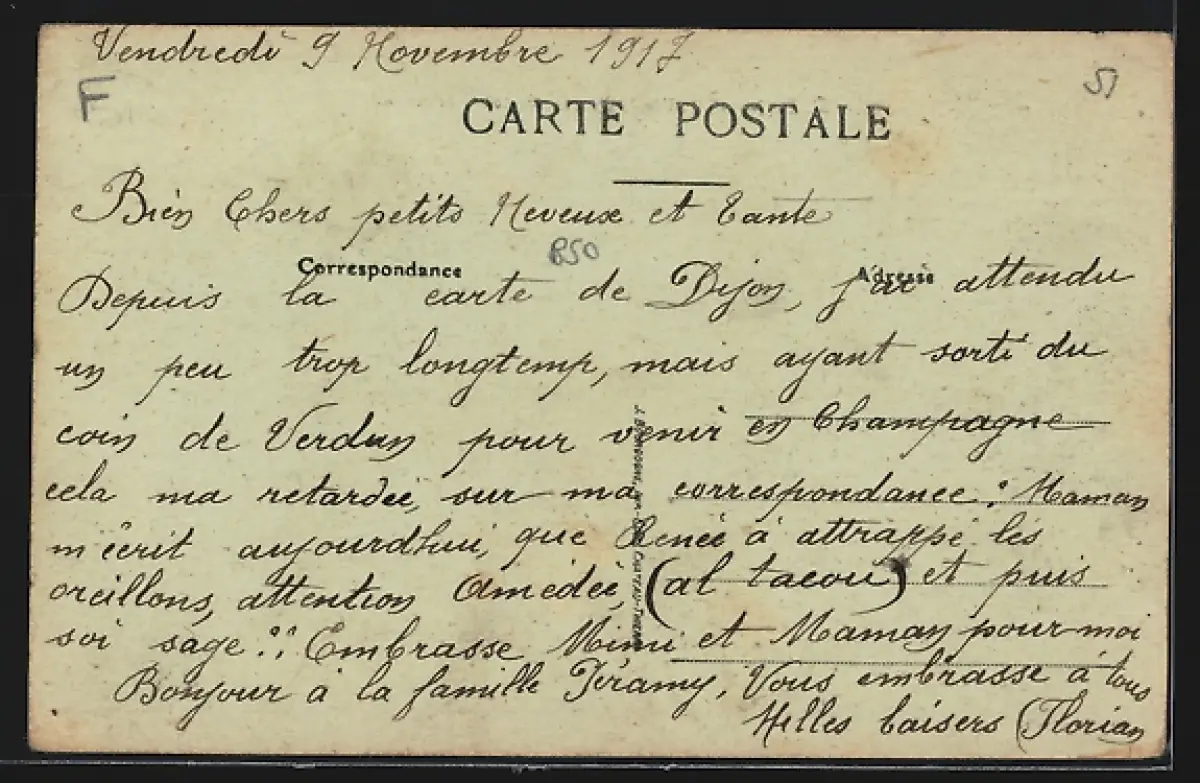 Vendredi 9 Novembre 1917
F
51
CARTE POSTALE
Bien Chers petits Neveux et Tante
B50
Correspondance
Adresse
Depuis la carte de Dijon, j'ai attendu
un peu trop longtemp, mais ayant sorti du
coin de Verdun pour venir en Champagne
cela ma retardée, sur ma correspondance. Maman
m'écrit aujourdhui, que Renée à attrappé les
oreillons, attention Amédée, (al tacou) et puis
soi sage !! Embrasse Mimi et Maman pour moi
Bonjour à la famille Péramy, Vous embrasse à tous
Milles baisers (Florian